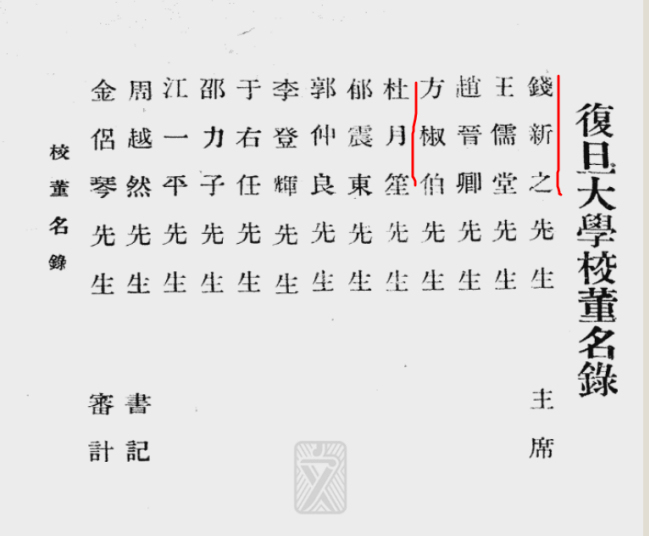 復旦大學校董名錄
錢新之先生 主席
王儒堂先生
趙晉卿先生
方椒伯先生
杜月笙先生
郁震東先生
郭仲良先生
李登輝先生
于右任先生
邵力子先生
江一平先生
周越然先生 書記
金侶琴先生 審計
校董名錄